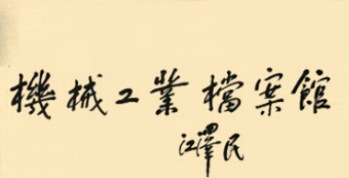 機械工業檔案館
江澤民